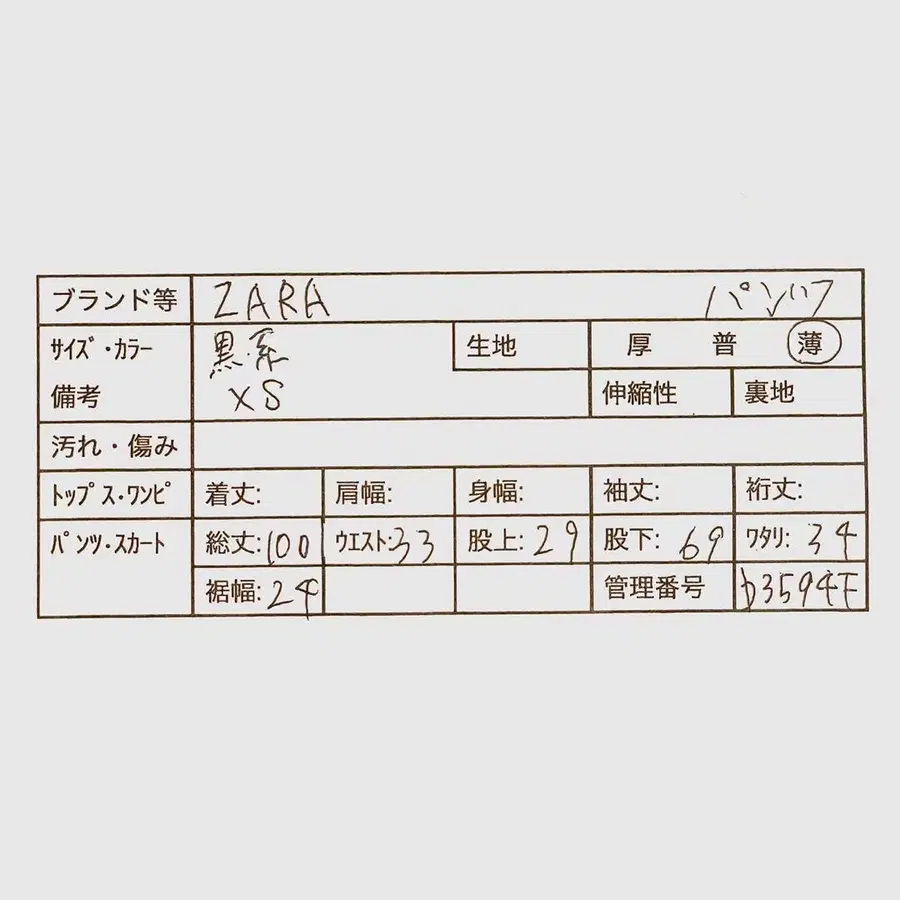 ブランド等 ZARA パンツ
サイズ・カラー 黒系 生地 厚 普 薄
備考 XS 伸縮性 裏地
汚れ・傷み
トップス・ワンピ 着丈: 肩幅: 身幅: 袖丈: 裄丈:
パンツ・スカート 総丈:100 ウエスト:33 股上:29 股下:69 ワタリ:34
裾幅:24 管理番号 b3594F